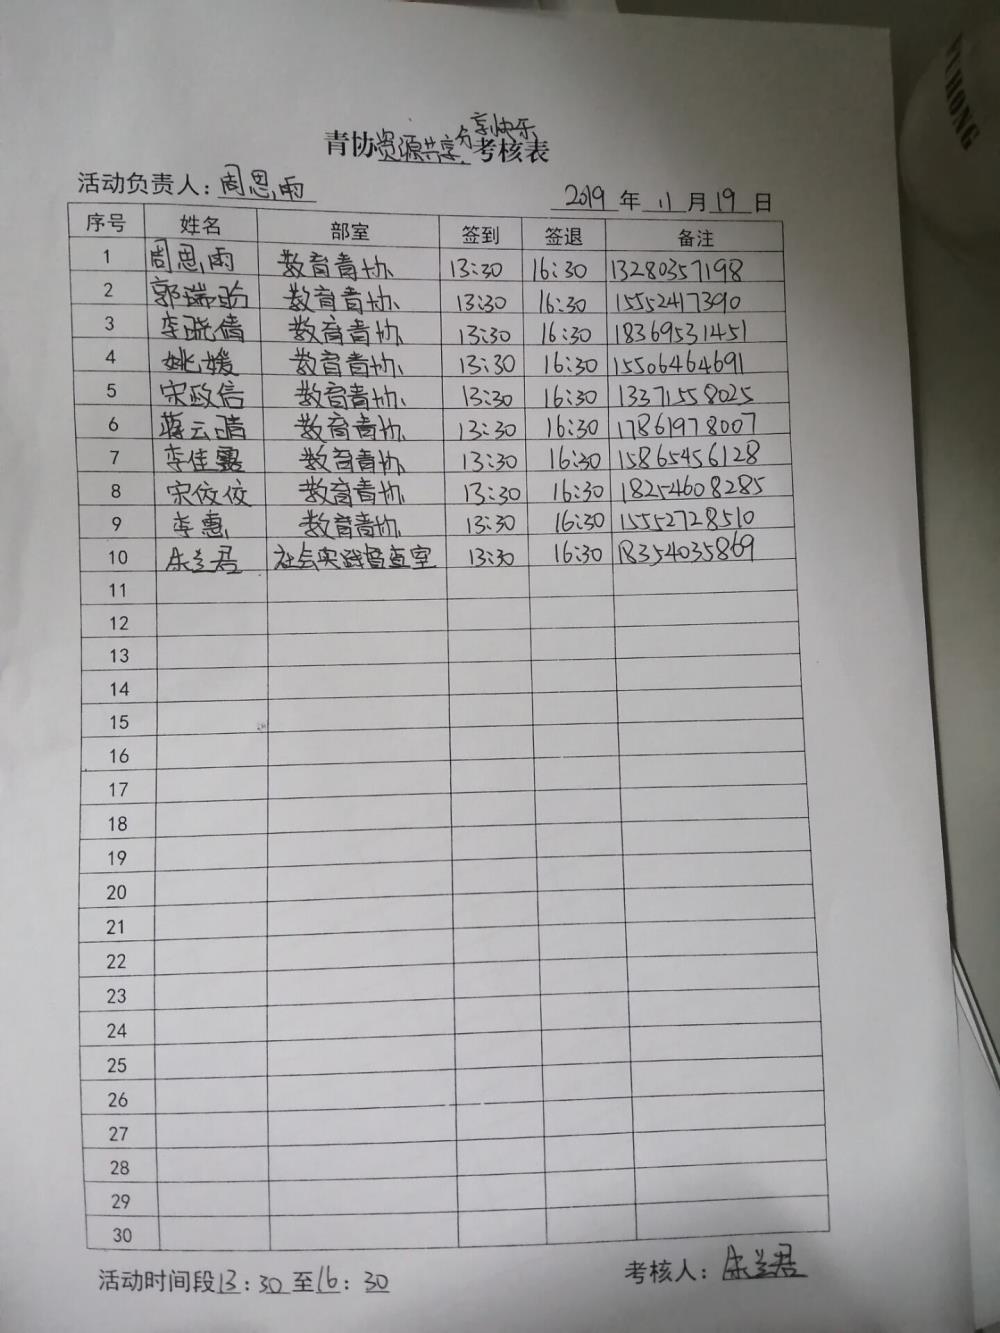 青协资源共享分享快乐考核表
活动负责人：周思雨 2019年11月19日
序号 姓名 部室 签到 签退 备注
1 周思雨 教育青协 13:30 16:30 13280357198
2 郭瑞 教育青协 13:30 16:30 15552417390
3 李晓倩 教育青协 13:30 16:30 18369531451
4 姚媛 教育青协 13:30 16:30 15506464691
5 宋政信 教育青协 13:30 16:30 13371558025
6 蒋云晴 教育青协 13:30 16:30 17861978007
7 李佳露 教育青协 13:30 16:30 15865456128
8 宋佼佼 教育青协 13:30 16:30 18254608285
9 李惠 教育青协 13:30 16:30 15552728510
10 兰君 社会实践督查室 13:30 16:30 18354035869
11
12
13
14
15
16
17
18
19
20
21
22
23
24
25
26
27
28
29
30
活动时间段13：30至16：30 考核人：兰君